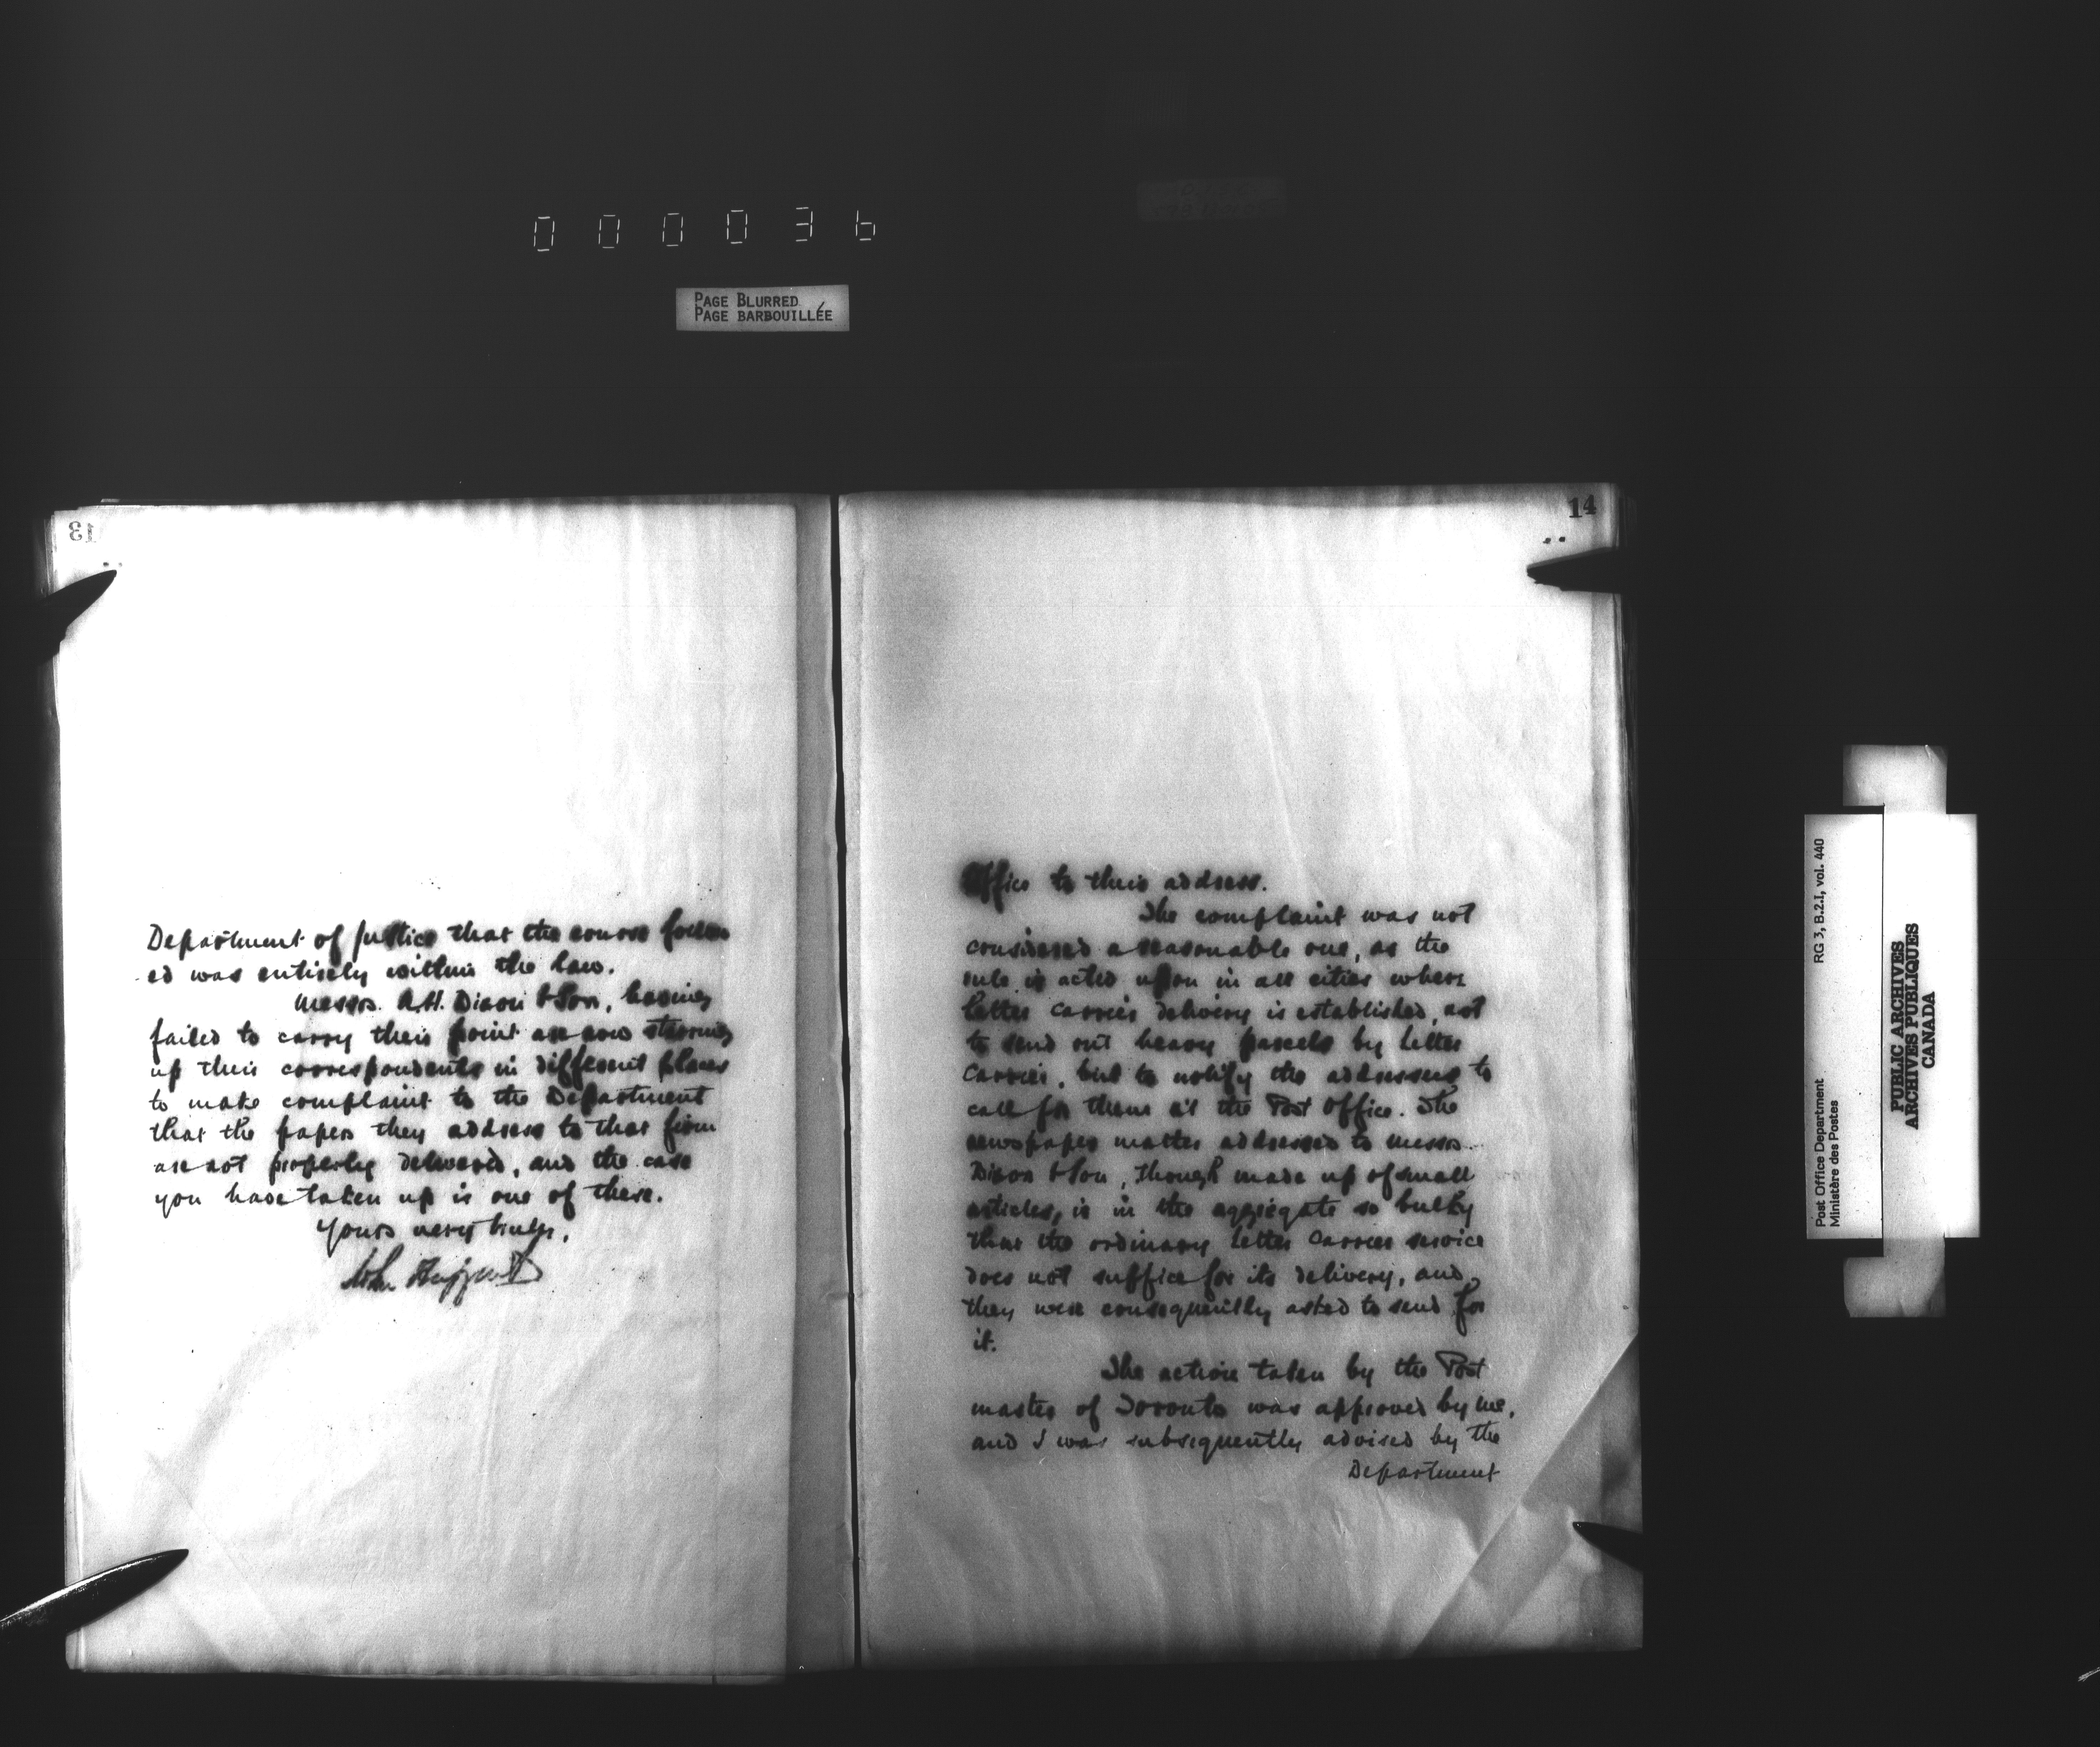 000036
PAGE BLURRED
PAGE BARBOUILLÉE
13
Department of Justice that the course follow
ed was entirely within the law.
Messrs. A.H. Dixon & Son, having
failed to carry their point are now stirring
up their correspondents in different places
to make complaint to the Department
that the papers they address to that firm
are not properly delivered, and the case
you have taken up is one of these.
Yours very truly,
John Haggart
14
Office to their address.
The complaint was not
considered a reasonable one, as the
rule is acted upon in all cities where
letter carrier delivery is established, not
to send out heavy parcels by letter
carrier, but to notify the addressees to
call for them at the Post Office. The
newspaper matter addressed to Messrs.
Dixon & Son, though made up of small
articles, is in the aggregate so bulky
that the ordinary letter carrier service
does not suffice for its delivery, and
they were consequently asked to send for
it.
The action taken by the Post
master of Toronto was approved by me,
and I was subsequently advised by the
Department
Post Office Department RG 3, B.2.I, vol. 440
Ministère des Postes
PUBLIC ARCHIVES
ARCHIVES PUBLIQUES
CANADA